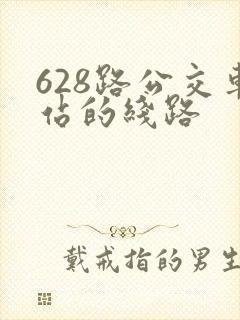 628路公交车
佔的线路
戴戒指的男生